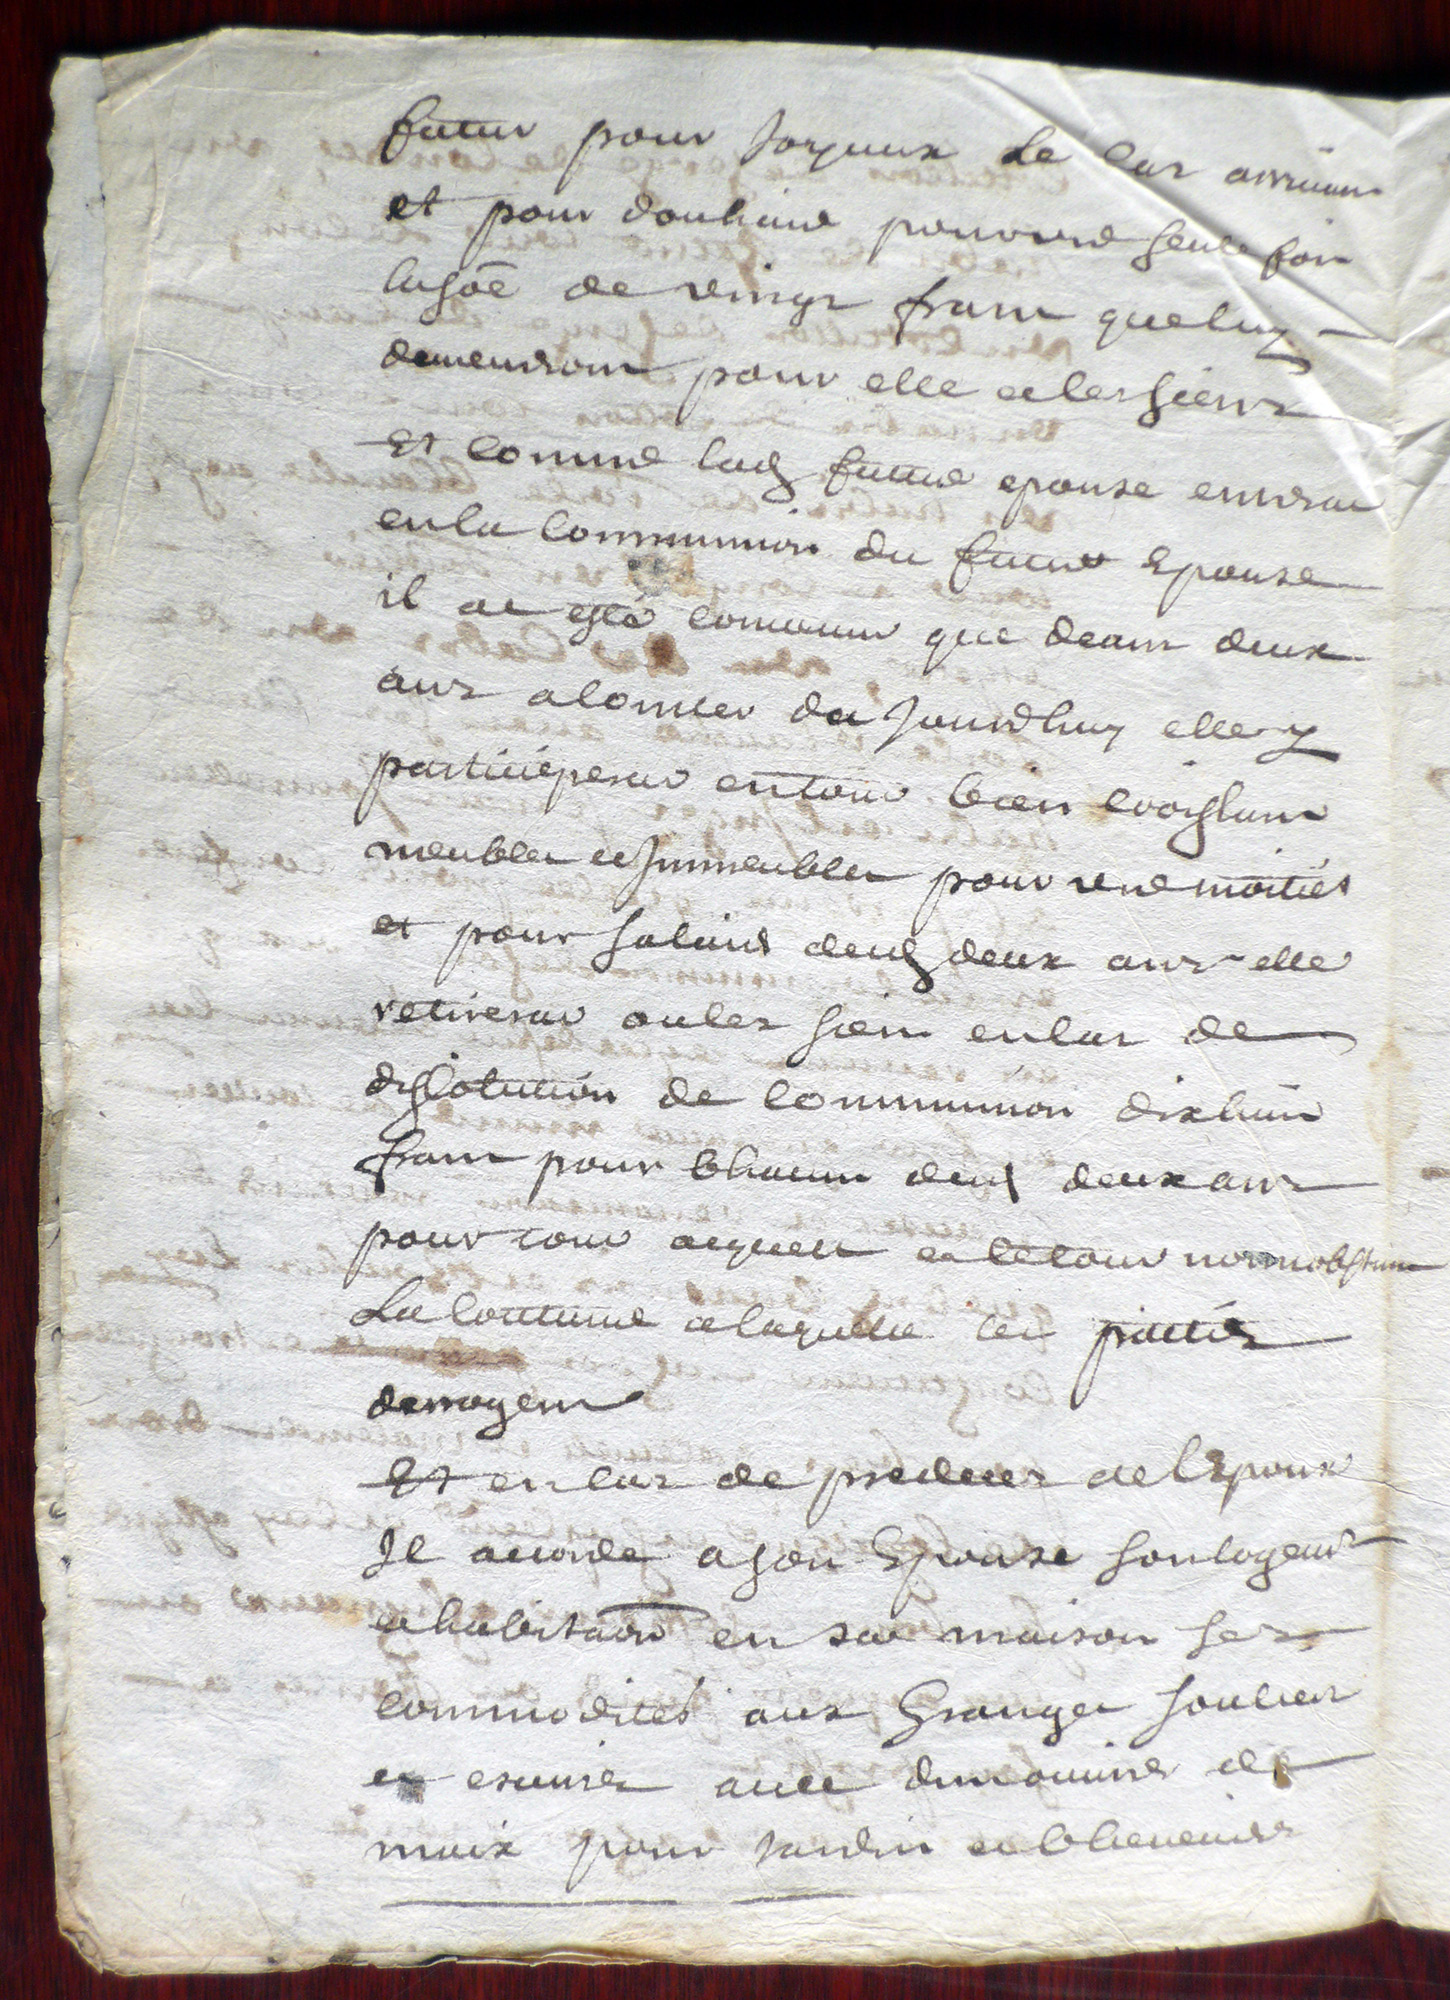 futur pour Joyaux Le cas arrivan
et pour douhaire pour une seule fois
la so͞e de vingt franc que luy
demeuront pour elle et les siens
Et comme lad future epouse entrera
en la Communion du futur Epouse
il at esté convenu que deans deux
ans a compter du Jourdhuy elle y
participera en tous bien éxistant
meubles et Jmmeubles pour une moitiés
et pour salaire desd deux ans elle
retirera ou les sien en cas de
dissolution de Communion dixhuit
franc pour Chacun desd deux ans
pour tous acquets et le tout nonnobstant
La Coutume a laquelle les parties
derrogent
Et en cas de predeces de l'Epoux
Jl accorde a son Epouse son logement
et habitaon en sa maison ses
commodités aux Granges soulier
et escuries avec demoiure de
maix pour Jardin et Cheneviere